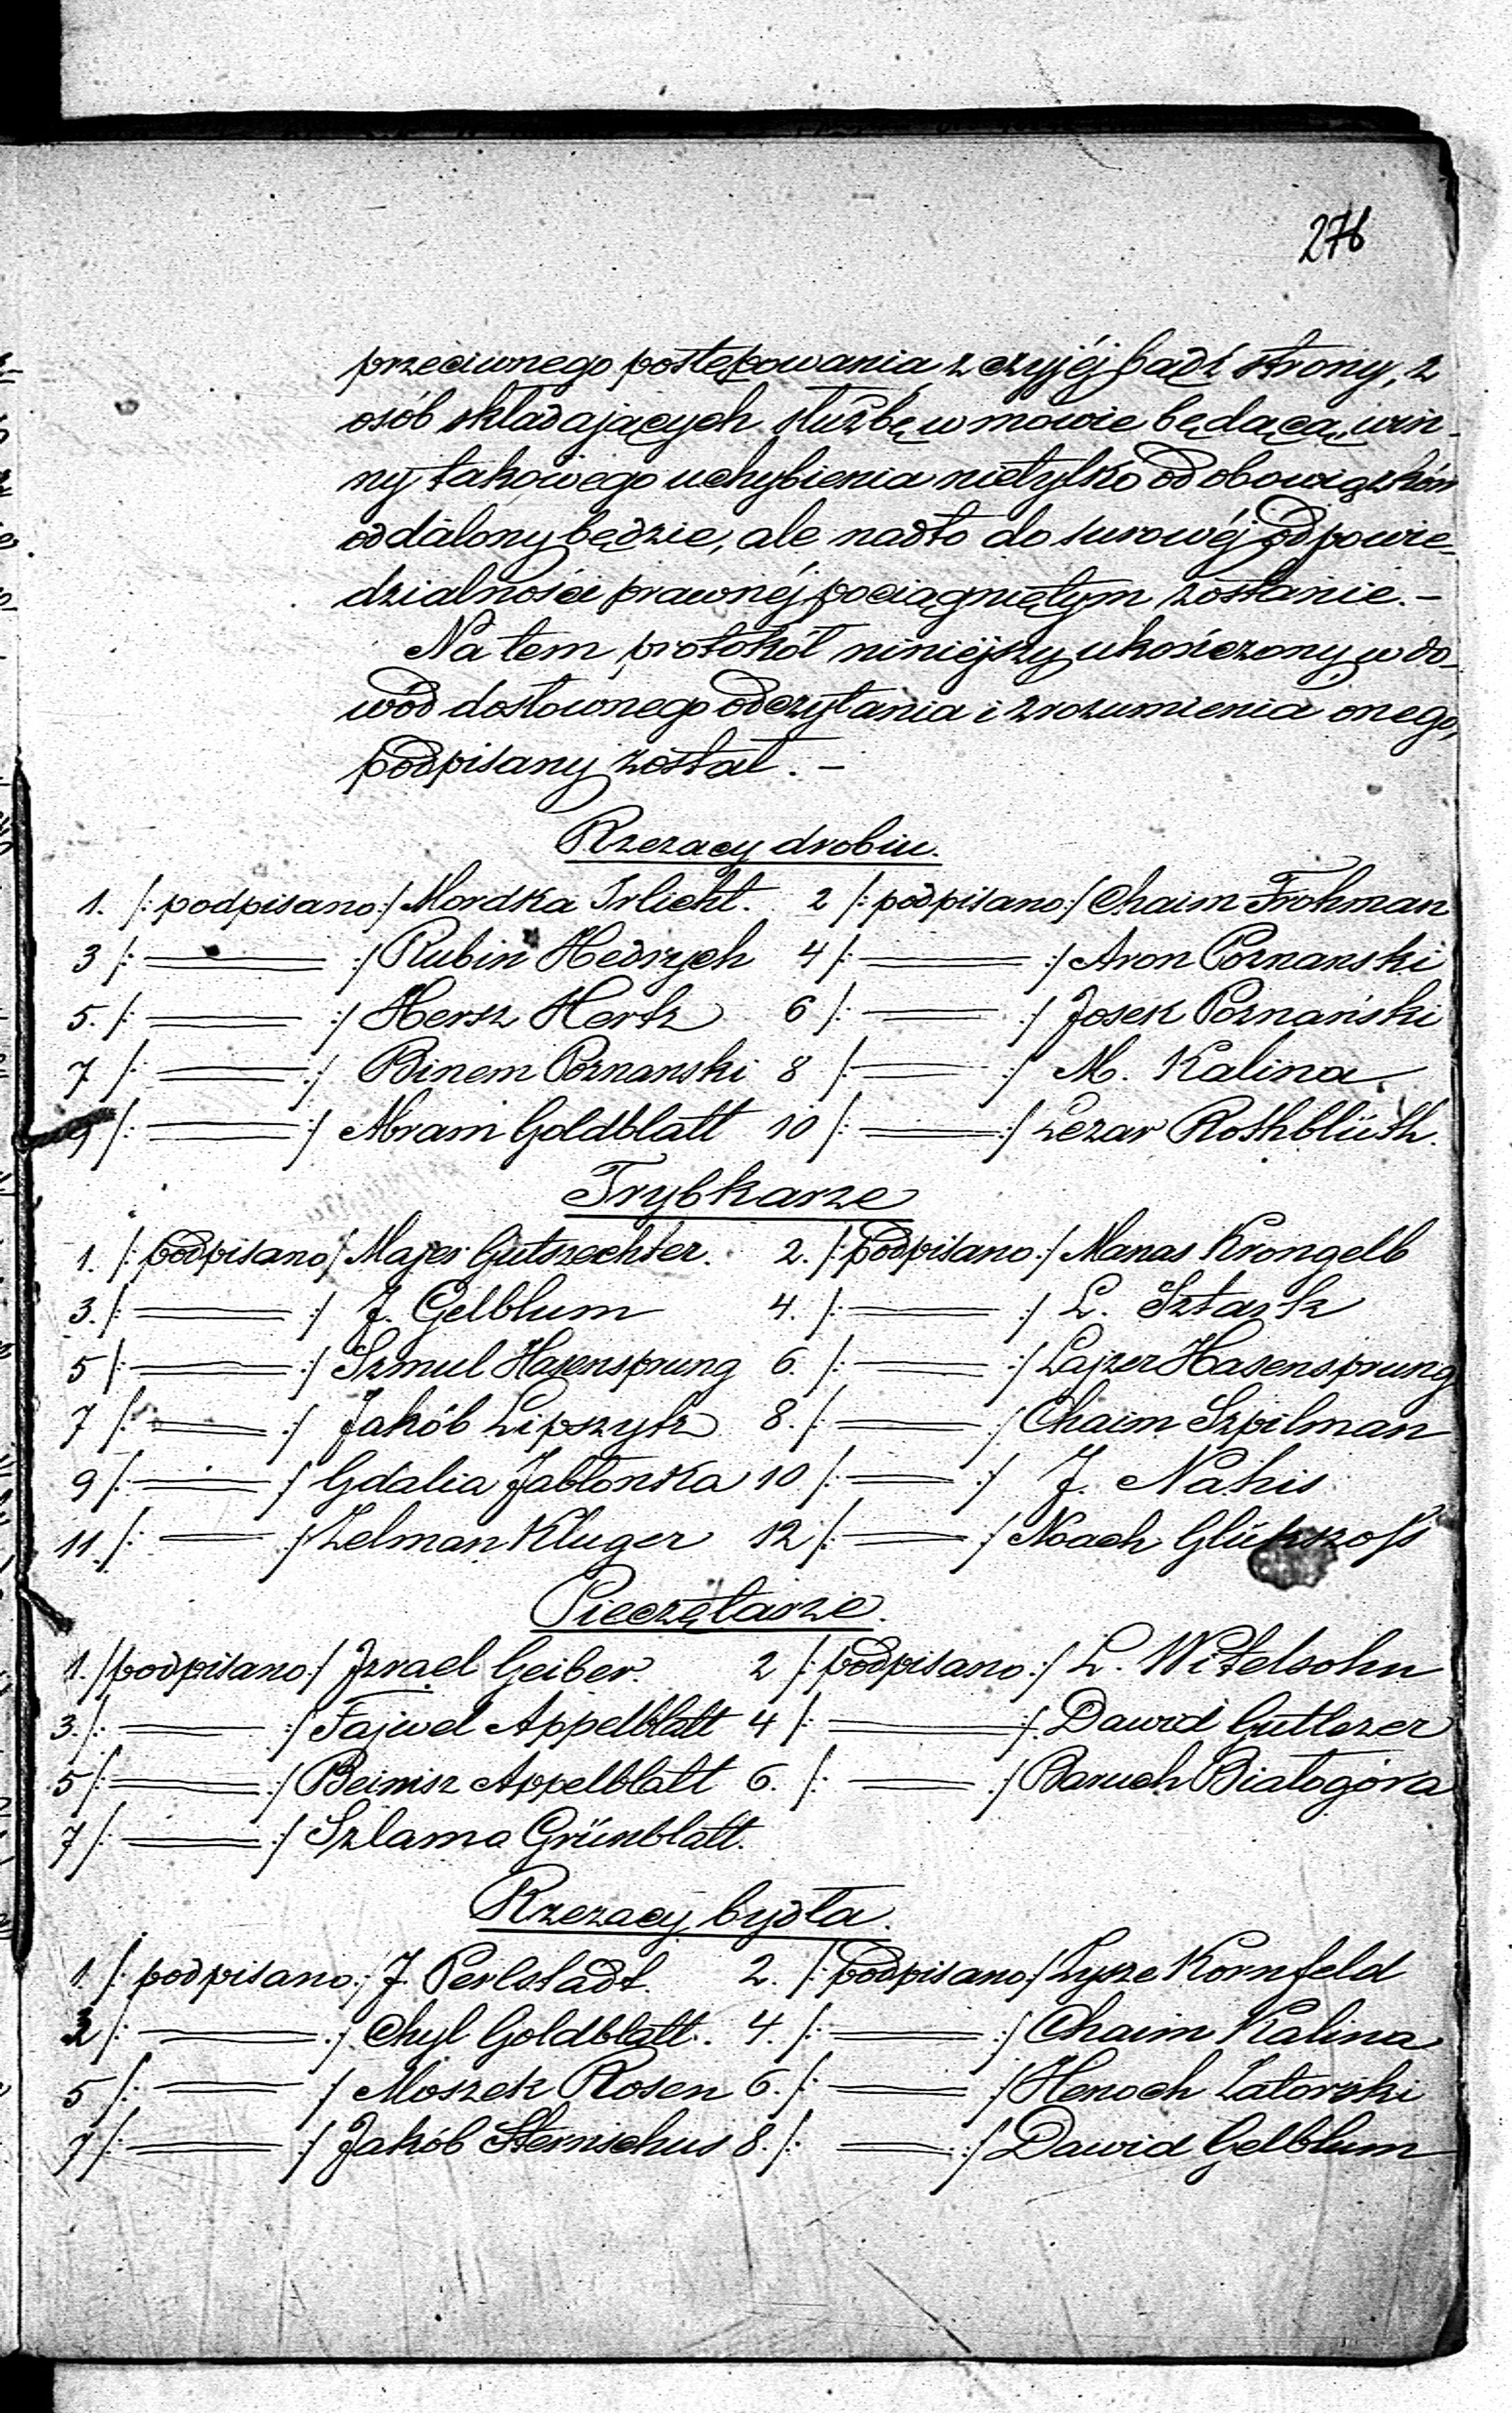 276
przeciwnego postępowania z czyjéj bądź strony, z
osób składających służbę w mowie będącą, win-
ny takowego uchybienia nietylko od obowiązków
oddalony będzie, ale nadto do surowéj odpowie-
dzialności prawnéj pociągniętym zostanie. -
Na tem protokół niniejszy ukończony, w do-
wód dosłownego odczytania i zrozumienia onego,
podpisany został. -
Rzezacy drobiu.
1. /: podpisano :/ Mordka Irlicht. 2 /: podpisano :/ Chaim Frohman
3 /: ——— :/ Rubin Hedrych 4 /: ——— :/ Aron Poznanski
5. /: ——— :/ Hersz Hertz 6 /: ——— :/ Josek Poznański
7 /: ——— :/ Binem Poznanski 8 /: ——— :/ M. Kalina
9 /: ——— :/ Abram Goldblatt 10 /: ——— :/ Lezar Rothblüth.
Trybkarze
1. /: podpisano / Majer Gutszechter. 2. /: podpisano :/ Manas Krongelb
3. /: ——— :/ J. Gelblum 4. /: ——— :/ L. Sztark
5 /: ——— :/ Szmul Hasensprung 6. /: ——— :/ Lajzer Hasensprung
7 /: ——— :/ Jakób Lipszytz 8. /: ——— :/ Chaim Szpilman
9 /: ——— :/ Gdalia Jabłonska 10 /: ——— :/ J. Nakis
11. /: ——— :/ Zelman Kluger 12 /: ——— :/ Noach Glükszoss
Pieczętarze.
1. /: podpisano :/ Izrael Geiber. 2 /: podpisano :/ L. Witelsohn
3. /: ——— :/ Fajwel Appelblatt 4 /: ——— :/ Dawid Gutlezer
5 /: ——— :/ Beinisz Appelblatt 6. /: ——— :/ Baruch Białogóra
7 /: ——— :/ Szlama Grünblatt.
Rzezacy bydła.
1 /: podpisano :/ J. Perlstadt. 2. /: podpisano / Lyzze Kornfeld
3 /: ——— :/ Chyl Goldblatt. 4. /: ——— :/ Chaim Kalina
5 /: ——— / Moszek Rosen 6. /: ——— :/ Henoch Zatorski
7 /: ——— :/ Jakób Sternschus 8. /: ——— :/ Dawid Gelblum